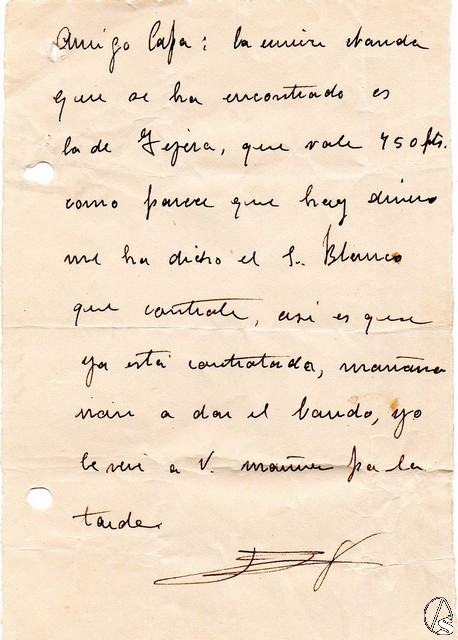 Amigo Capa: la única banda
que se ha encontrado es
la de Tejera, que vale 750 pts.
como parece que hay dinero
me ha dicho el Sr. Blanco
que contrate, así es que
ya está contratada, mañana
irán a dar el bando, yo
le veré a V. mañana pa la
tarde.